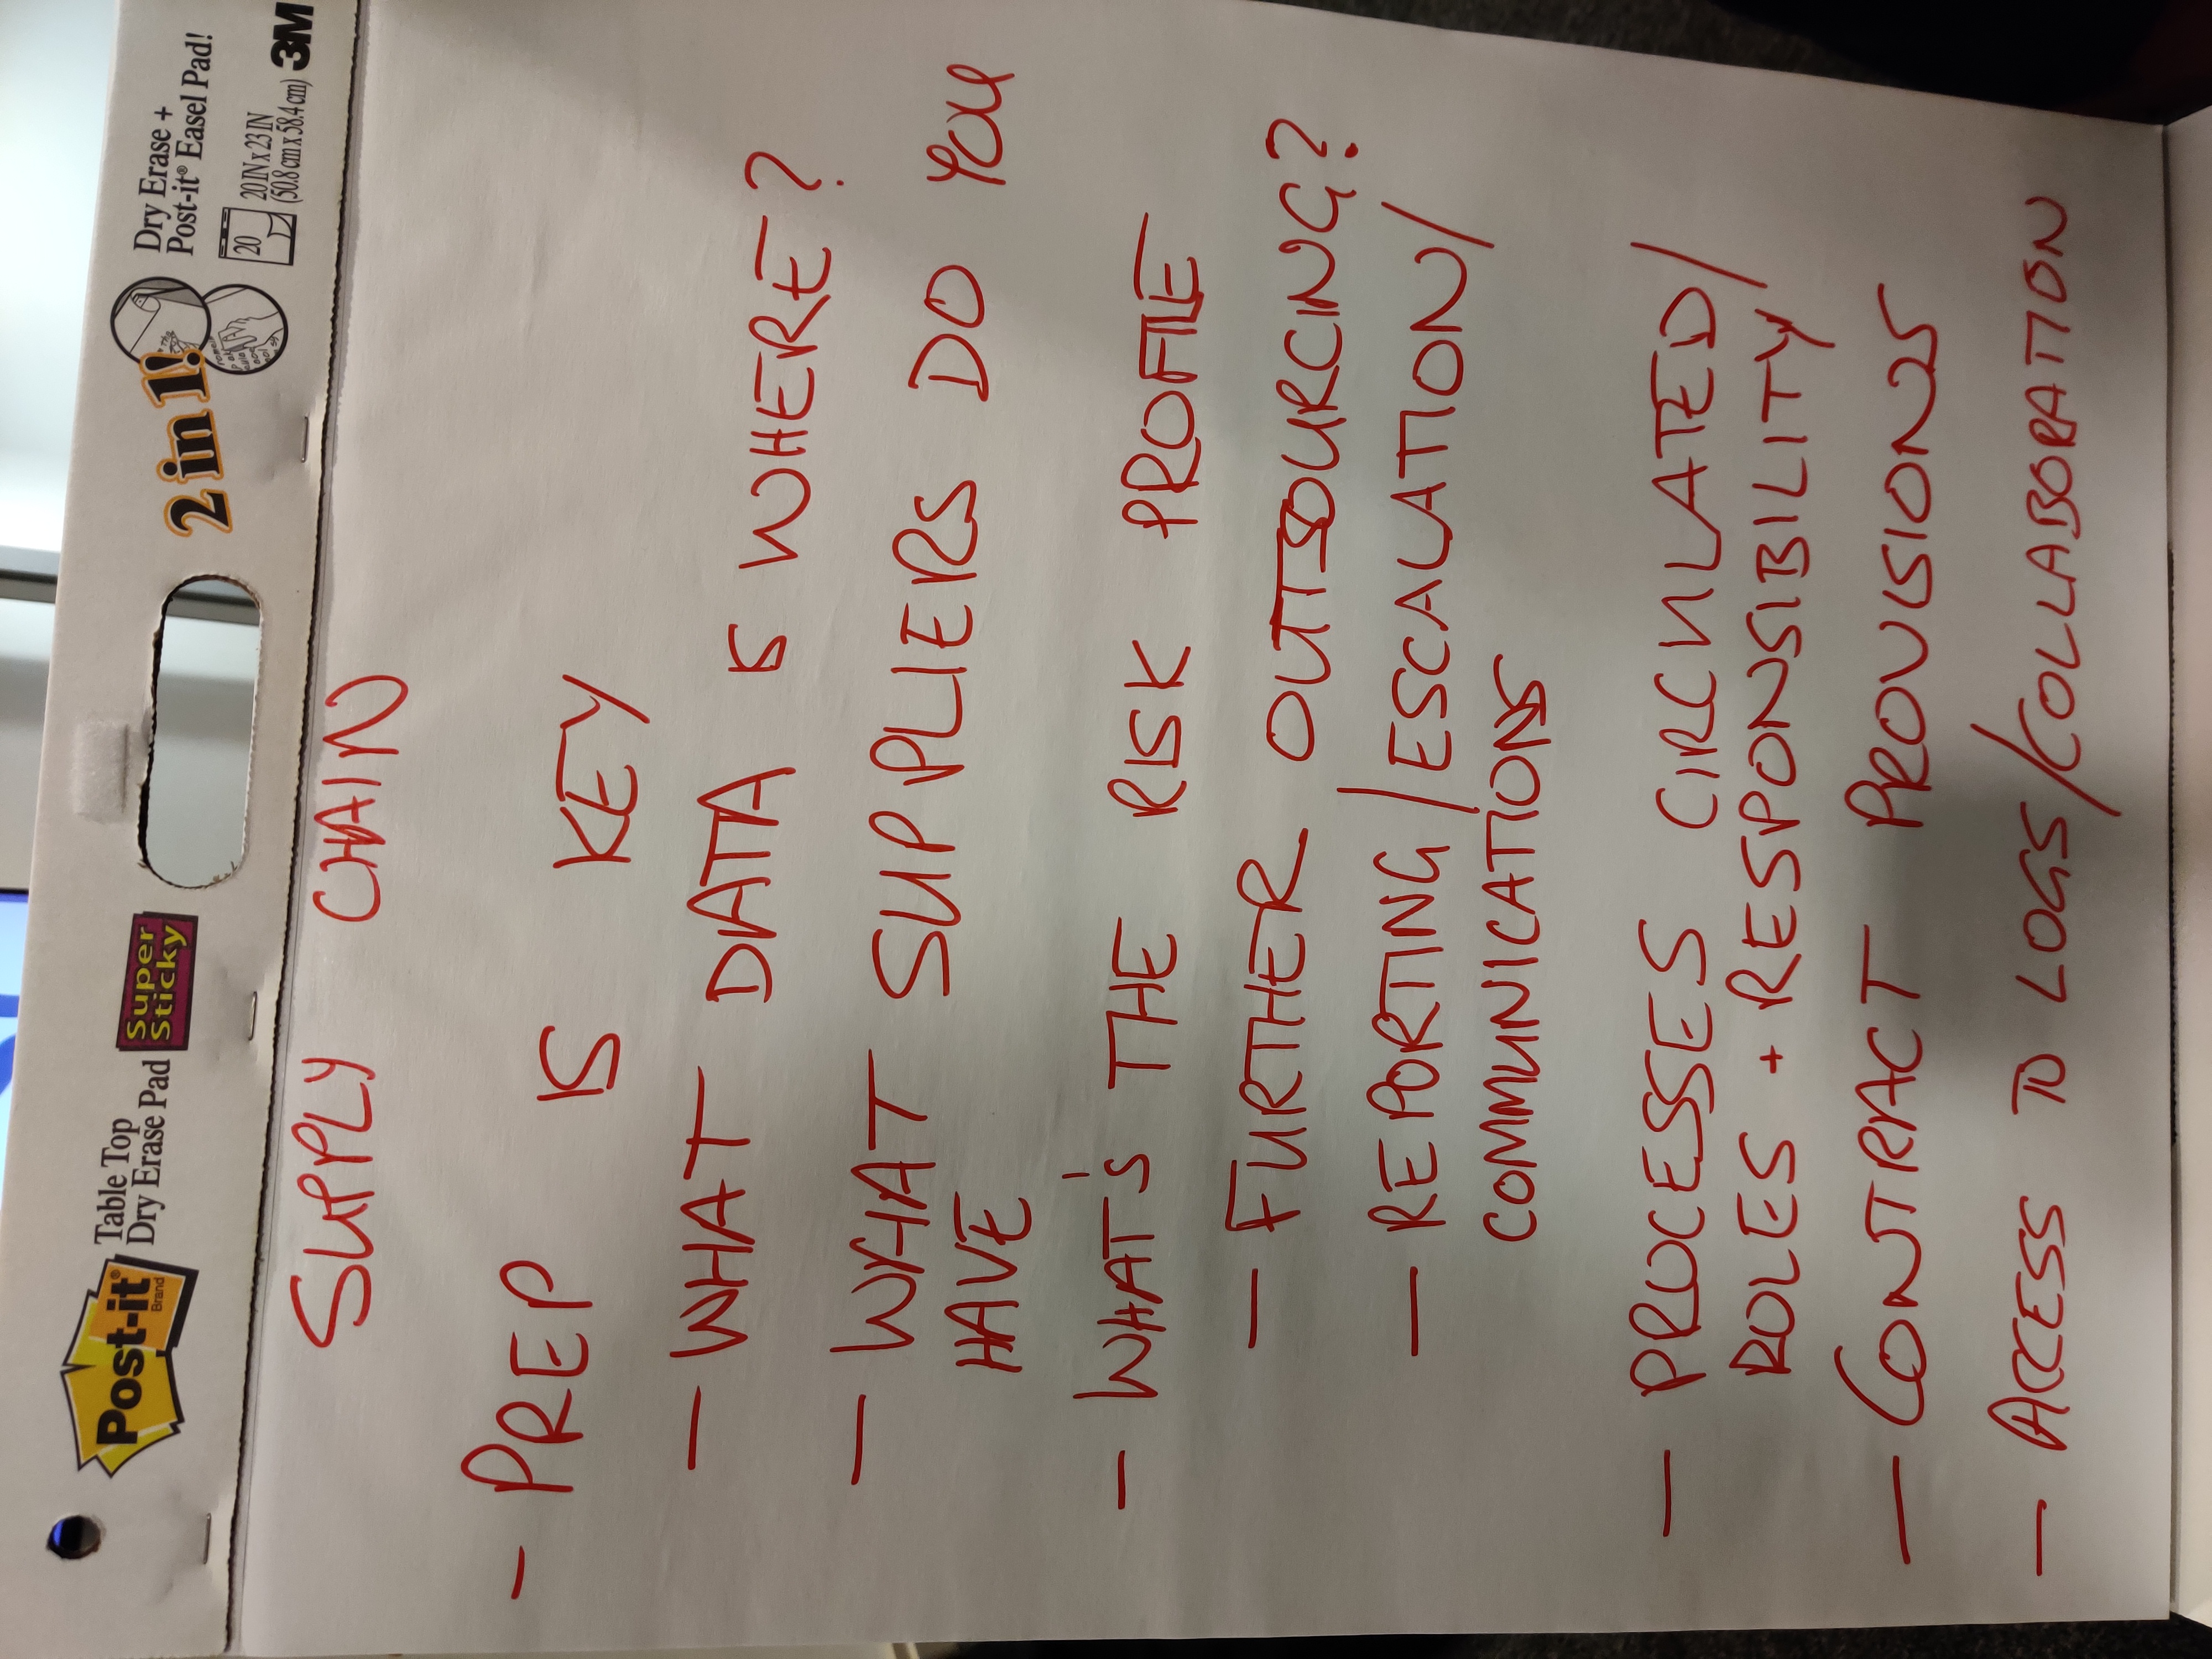 Post-it®
Brand
Table Top
Dry Erase Pad
Super
Sticky
2 in 1!
Dry Erase +
Post-it® Easel Pad!
20
20 IN x 23 IN
(50.8 cm x 58.4 cm)
3M
SUPPLY CHAIN
- PREP IS KEY
- WHAT DATA IS WHERE?
- WHAT SUPPLIERS DO YOU
HAVE
- WHAT'S THE RISK PROFILE
- FURTHER OUTSOURCING?
- REPORTING/ESCALATION/
COMMUNICATIONS
- PROCESSES CIRCULATED/
ROLES + RESPONSIBILITY
- CONTRACT PROVISIONS
- ACCESS TO LOGS/COLLABORATION